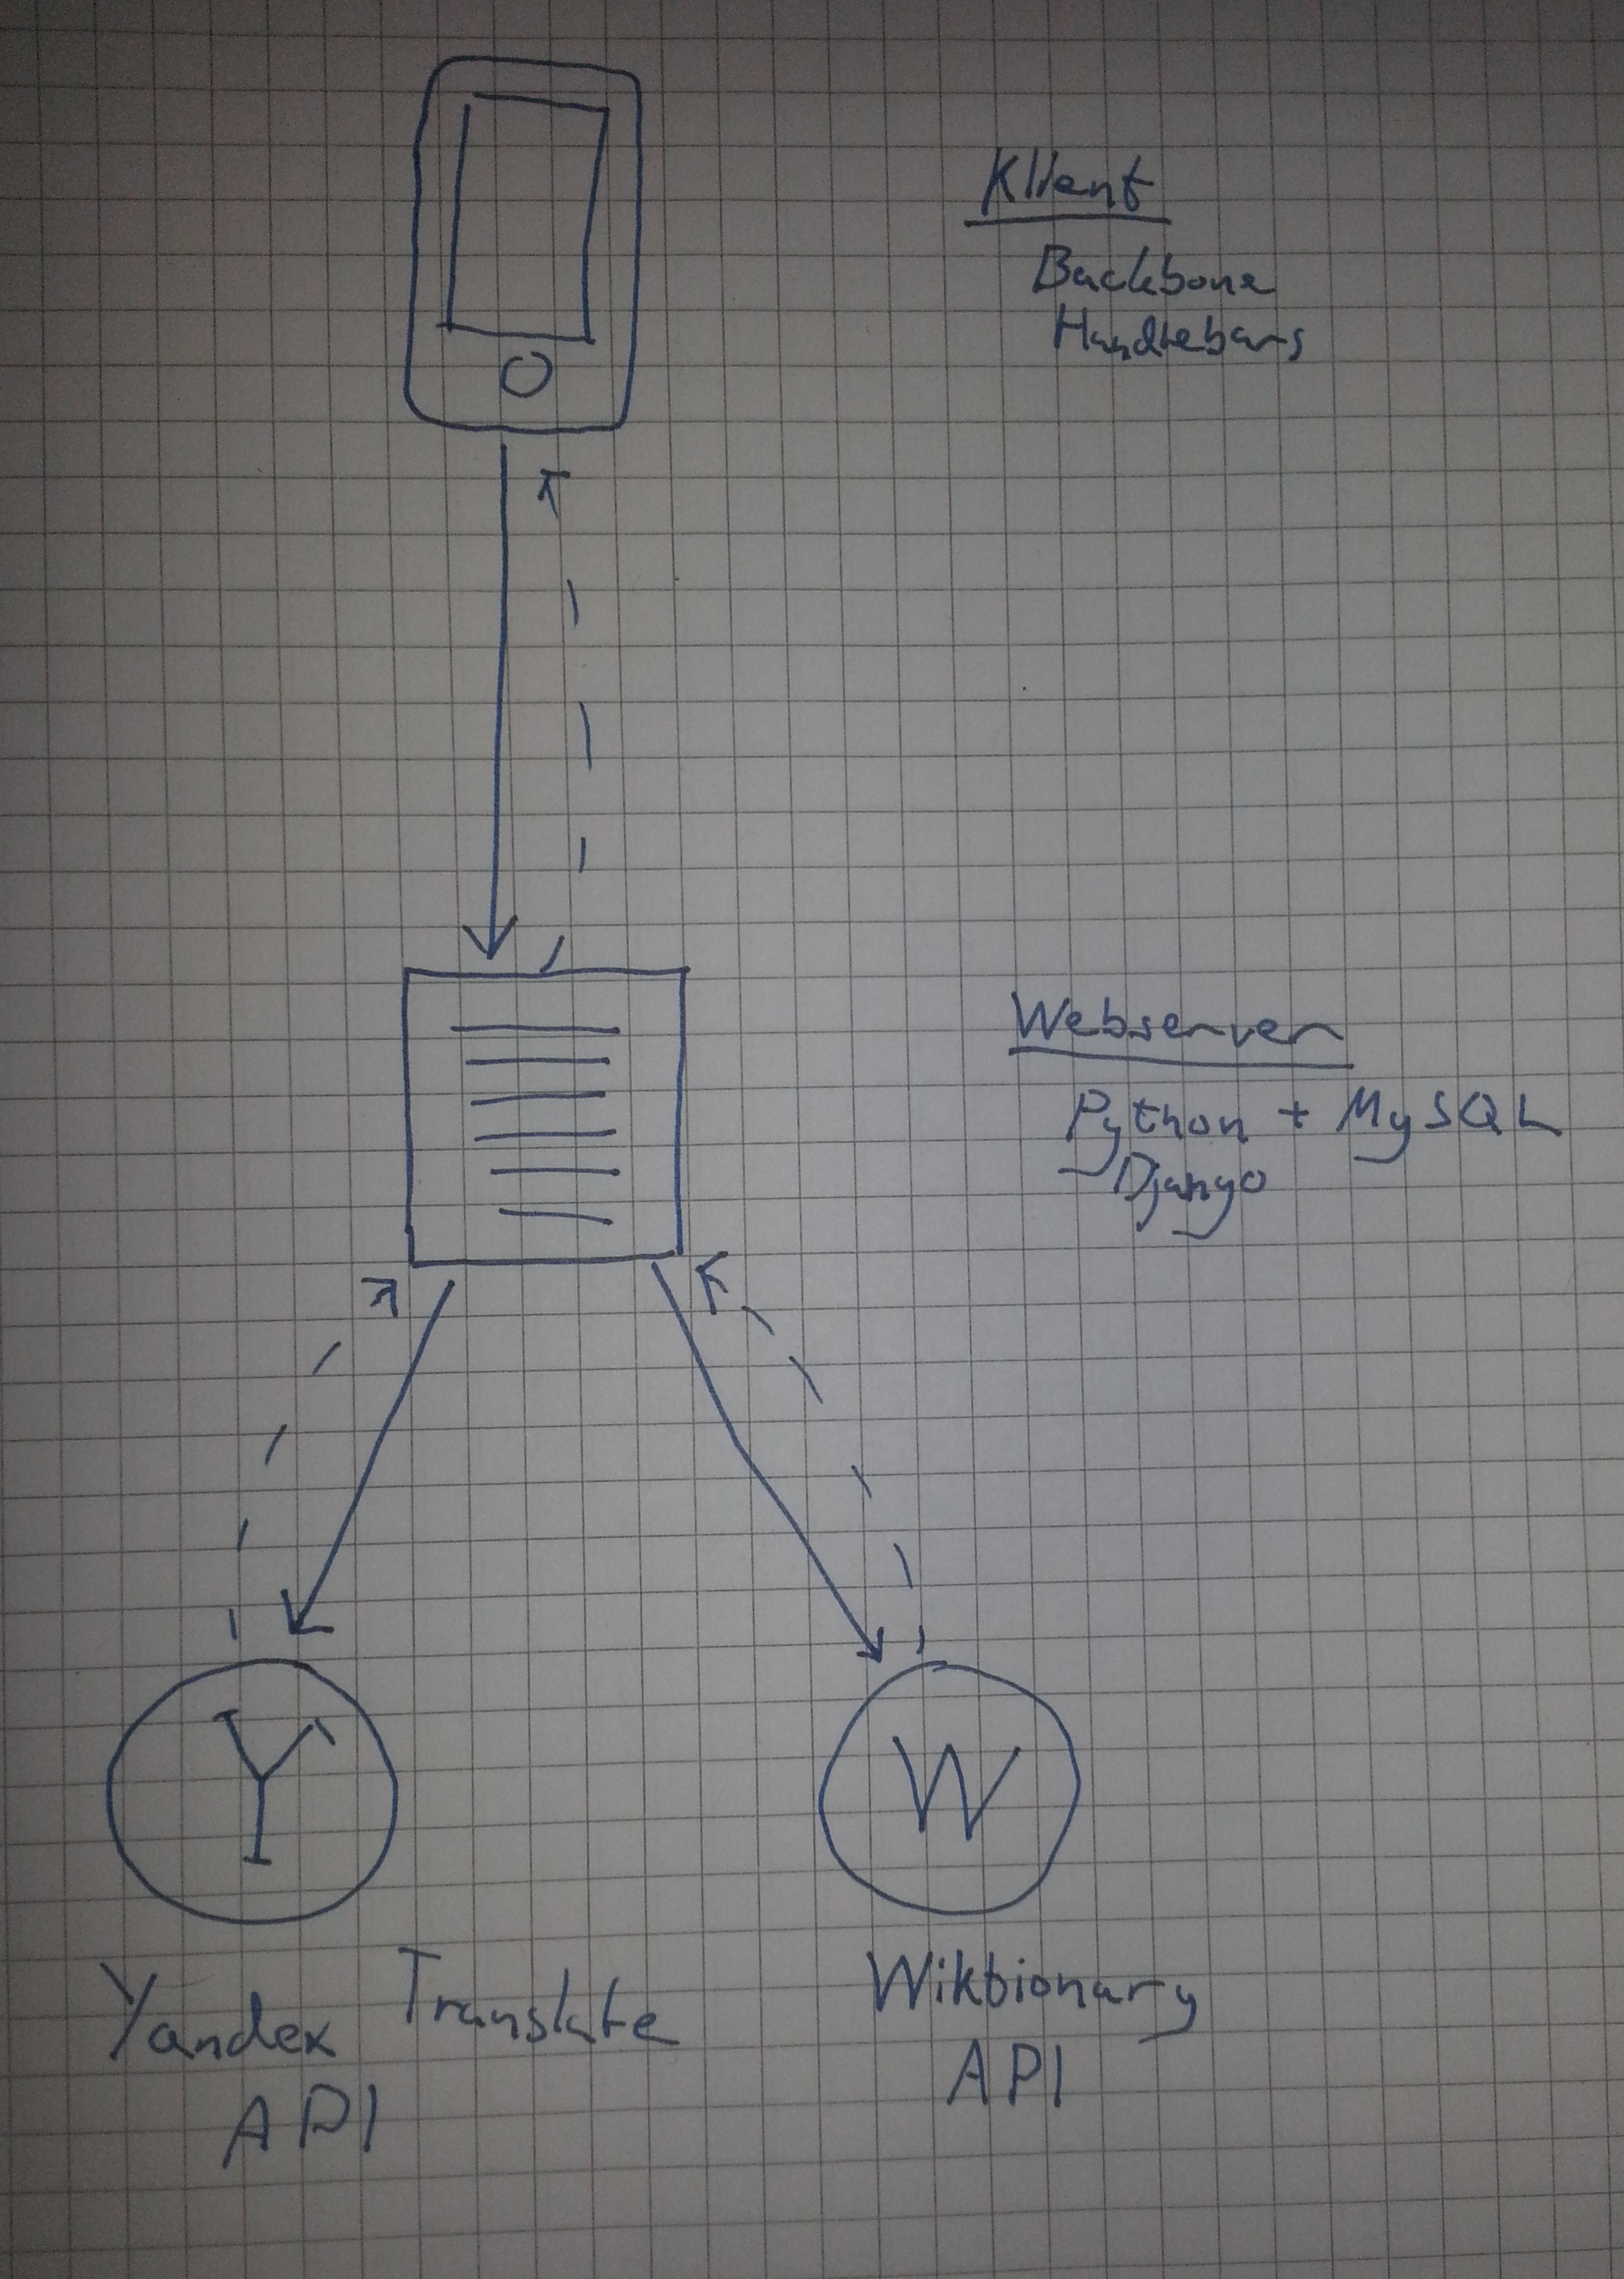 Klient
Backbone
Handlebars
Webserver
Python + MySQL
Django
Y
W
Yandex Translate
API
Wiktionary
API